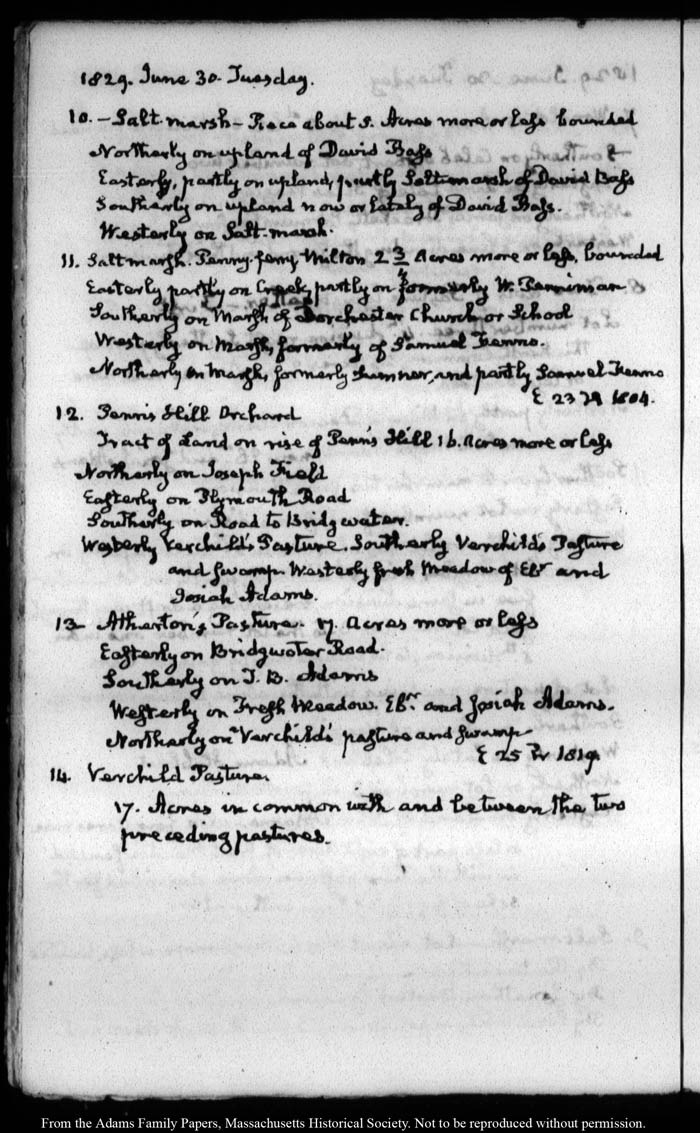 1829. June 30. Tuesday.
10. – Salt marsh – Piece about 5. Acres more or less bounded
Northerly on upland of David Bass
Easterly, partly on upland, partly Salt marsh of David Bass
Southerly on upland now or lately of David Bass.
Westerly on Salt-marsh.
11. Salt marsh. Penny ferry Milton 2 3/4 Acres more or less, bounded
Easterly partly on Creek, partly on formerly W. Penniman
Southerly on Marsh of Dorchester Church or School
Westerly on Marsh, formerly of Samuel Kenno.
Northerly on Marsh, formerly Sumner, and partly Samuel Kenno
23 1804.
12. Penn's Hill Orchard
Tract of Land on rise of Penn's Hill 16. Acres more or less
Northerly on Joseph Field
Easterly on Plymouth Road
Southerly on Road to Bridgwater.
Westerly Verchild's Pasture. Southerly Verchild's Pasture
and swamp. Westerly fresh Meadow of Ebr and
Josiah Adams.
13– Atherton's Pasture. 17. Acres more or less
Easterly on Bridgwater Road.
Southerly on T. B. Adams
Westerly on Fresh Meadow. Ebr. and Josiah Adams.
Northerly on Verchild's pasture and swamp–
25 1819.
14. Verchild Pasture.
17. Acres in common with and between the two
preceding pastures.
From the Adams Family Papers, Massachusetts Historical Society. Not to be reproduced without permission.